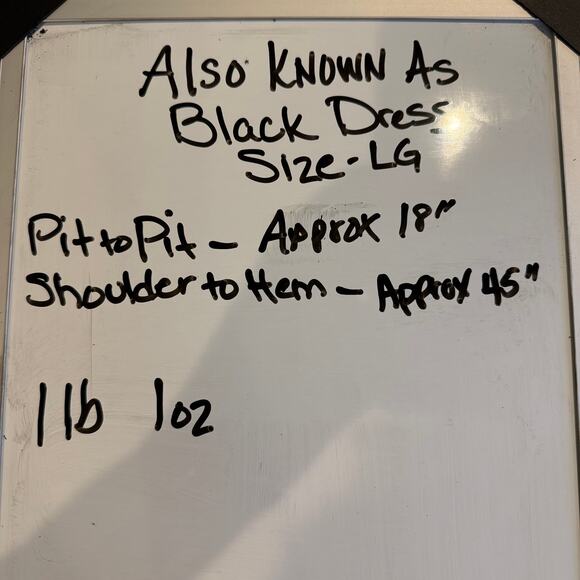 Also Known As
Black Dress
Size-LG
Pit to Pit - Approx 18"
Shoulder to Hem - Approx 45"
1 lb 1oz